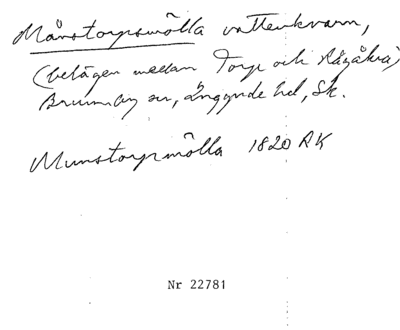 Månstorpsmölla vattenkvarn,
(belägen mellan Torp och Rågåkra)
Brunnby sn, Luggude hd, Sk.
Munstorpmölla 1820 RK
Nr 22781